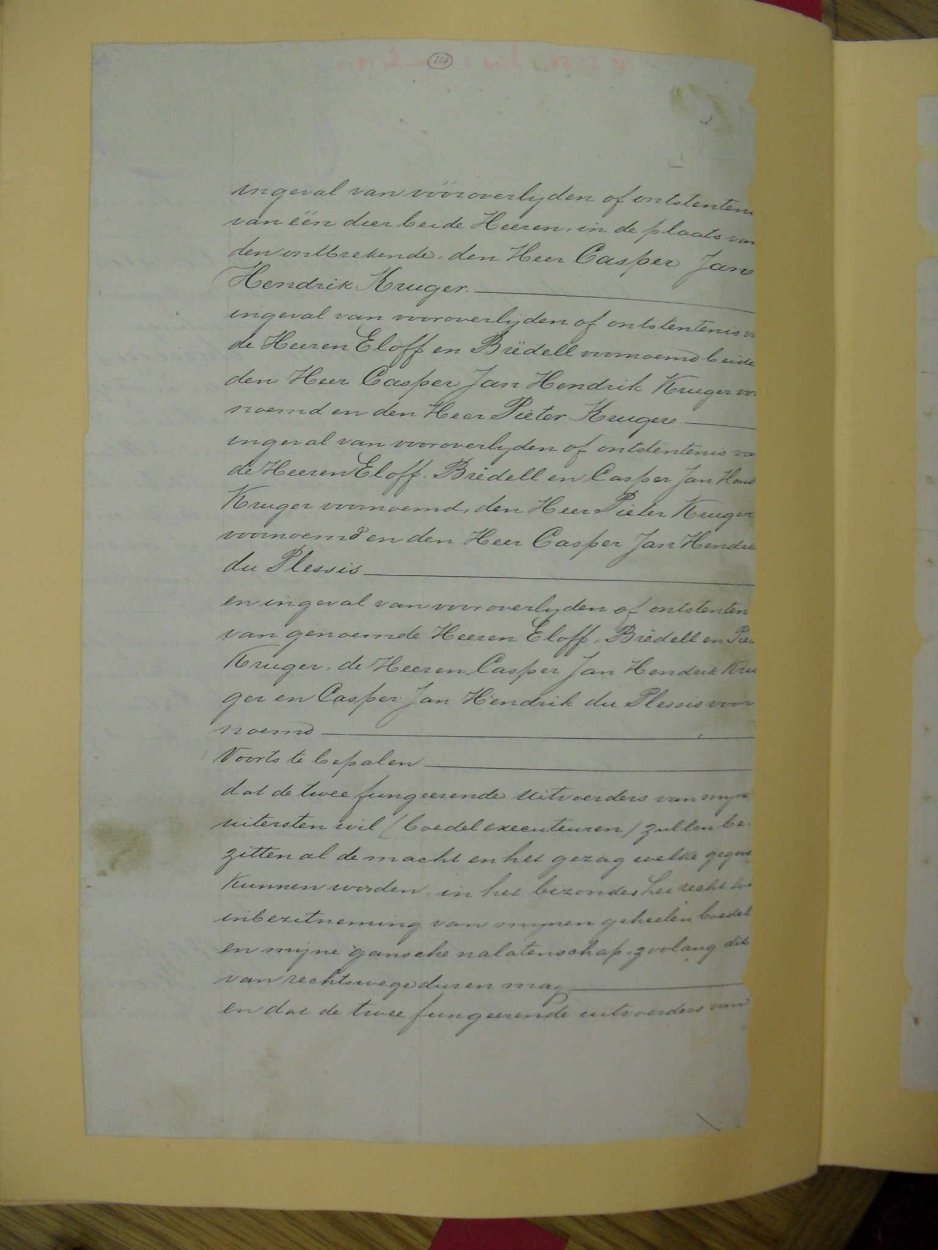 24
ingeval van vóóroverlijden of ontstenten
van één dier beide Heeren, in de plaats van
den ontbrekende, den Heer Casper Jans
Hendrik Kruger
ingeval van vooroverlijden of ontstentenis v
de Heeren Eloff en Brëdell voornoemd beide
den Heer Casper Jan Hendrik Kruger voo
noemd en den Heer Pieter Kruger
ingeval van vooroverlyden of ontstentenis va
de Heeren Eloff, Brëdell en Casper Jan Hend
Kruger voornoemd, den Heer Pieter Kruger
voornoemd en den Heer Casper Jan Hendri
du Plessis
en ingeval van vooroverlyden of ontstenten
van genoemde Heeren Eloff, Brëdell en Pie
Kruger, de Heeren Casper Jan Hendrik Kru
ger en Casper Jan Hendrik du Plessis voor
noemd
Voorts te bepalen
dat de twee fungeerende uitvoerders van myn
uitersten wil (boedel executeuren) zullen be-
zitten al de macht en het gezag welke gegeve
kunnen worden, in het bizonder het recht to
inbezitneming van mynen geheelen boedel
en myne gansche nalatenschap, zoolang dit
van rechtswege duren mag
en dat de twee fungeerende uitvoerders van